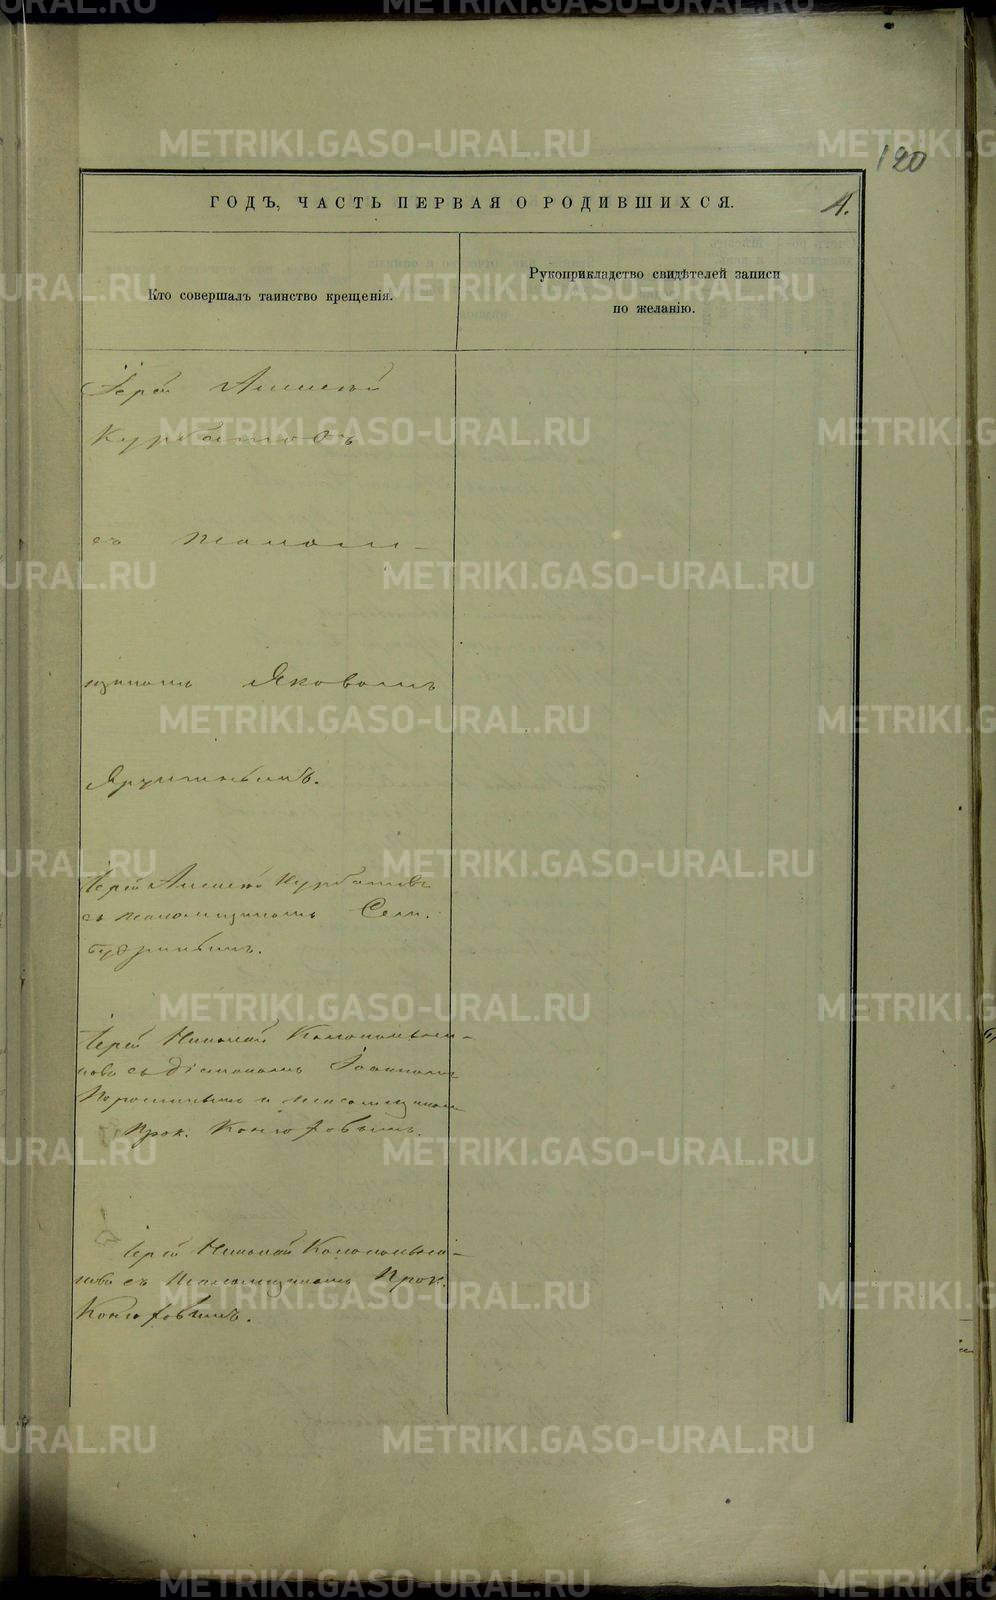 120
ГОДЪ, ЧАСТЬ ПЕРВАЯ О РОДИВШИХСЯ.
4.
Кто совершалъ таинство крещенія.
Рукоприкладство свидѣтелей записи
по желанію.
Іерей Алексѣй
Курбатовъ
съ псалом-
щикомъ Яковомъ
Ярутинымъ.
Іерей Алексѣй Курбатовъ
съ псаломщикомъ Сем.
Бодринымъ.
Іерей Николай
съ діакономъ Іоанномъ
и псаломщикомъ
Прок. Конюховымъ.
Іерей Николай
съ псаломщикомъ Прок.
Конюховымъ.
METRIKI.GASO-URAL.RU